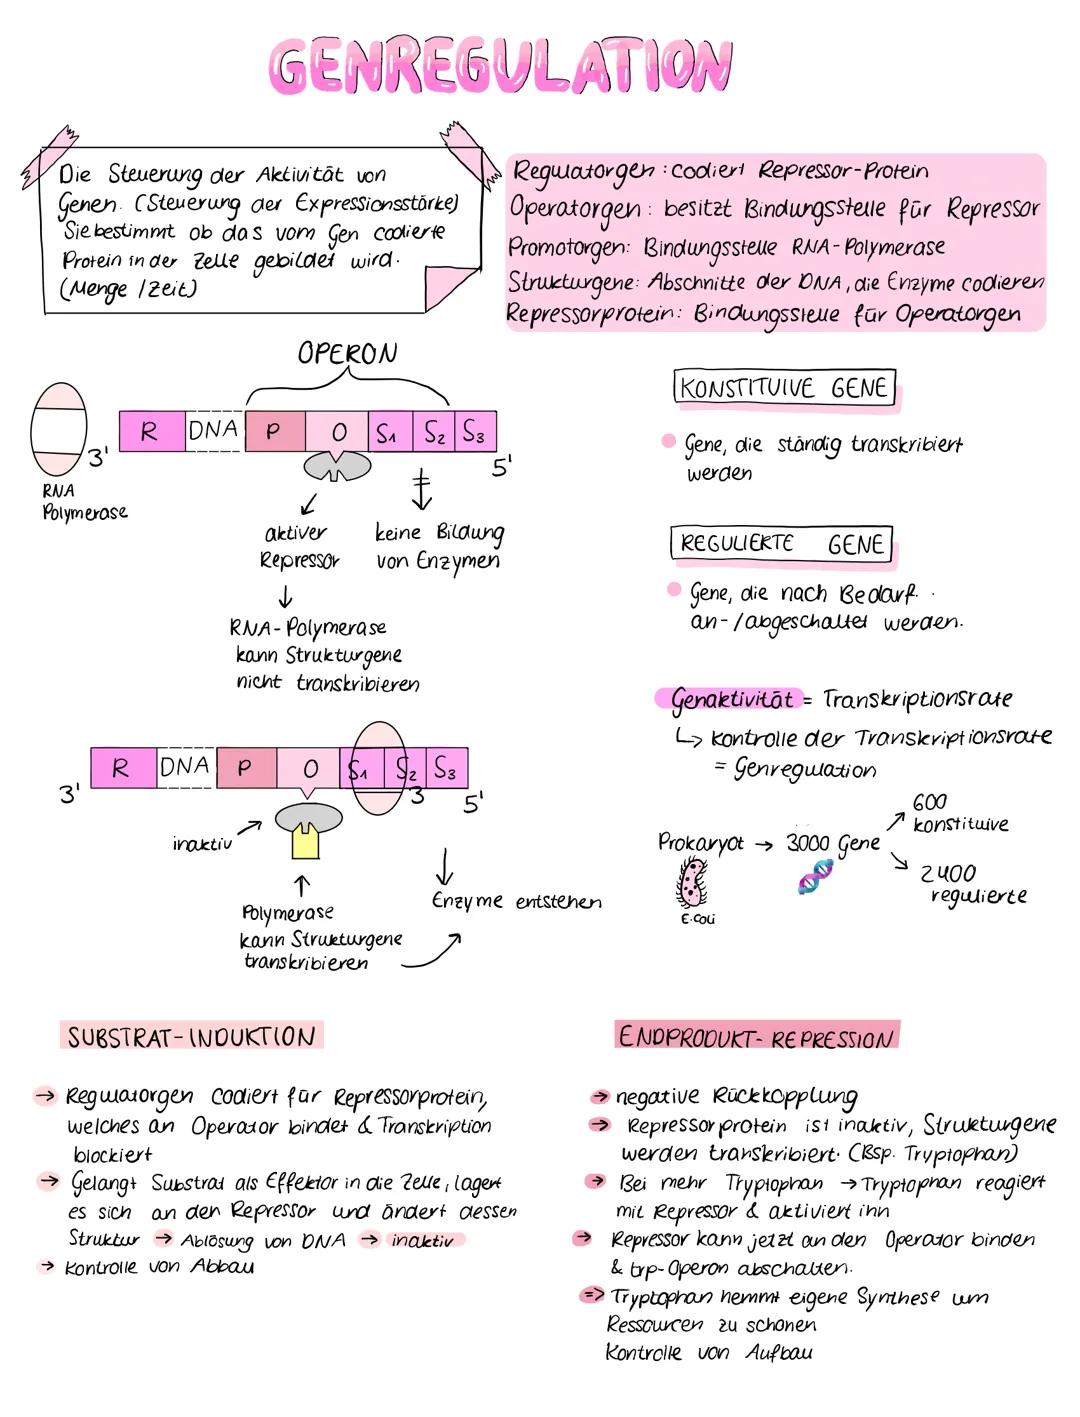 GENREGULATION
Die Steuerung der Aktivität von
Genen. (Steuerung der Expressionsstärke)
Sie bestimmt ob das vom Gen codierte
Protein in der Zelle gebildet wird.
(Menge / Zeit)
Regulatorgen : codiert Repressor-Protein
Operatorgen : besitzt Bindungsstelle für Repressor
Promotorgen: Bindungsstelle RNA-Polymerase
Strukturgene: Abschnitte der DNA, die Enzyme codieren
Repressorprotein: Bindungsstelle für Operatorgen
OPERON
R DNA P O S1 S2 S3
3'
5'
RNA
Polymerase
aktiver
Repressor
keine Bildung
von Enzymen
RNA-Polymerase
kann Strukturgene
nicht transkribieren
KONSTITUIVE GENE
Gene, die ständig transkribiert
werden
REGULIERTE GENE
Gene, die nach Bedarf
an-/abgeschaltet werden.
Genaktivität = Transkriptionsrate
↳ Kontrolle der Transkriptionsrate
= Genregulation
Prokaryot → 3000 Gene
600
konstituive
2400
regulierte
E.Coli
R DNA P O S1 S2 S3
3'
3
5'
inaktiv
Polymerase
kann Strukturgene
transkribieren
Enzyme entstehen
SUBSTRAT-INDUKTION
→ Regulatorgen codiert für Repressorprotein,
welches an Operator bindet & Transkription
blockiert
→ Gelangt Substrat als Effektor in die Zelle, lagert
es sich an den Repressor und ändert dessen
Struktur → Ablösung von DNA → inaktiv
→ Kontrolle von Abbau
ENDPRODUKT-REPRESSION
→ negative Rückkopplung
→ Repressorprotein ist inaktiv, Strukturgene
werden transkribiert. (Bsp. Tryptophan)
→ Bei mehr Tryptophan → Tryptophan reagiert
mit Repressor & aktiviert ihn
→ Repressor kann jetzt an den Operator binden
& trp-Operon abschalten.
=> Tryptophan hemmt eigene Synthese um
Ressourcen zu schonen
Kontrolle von Aufbau